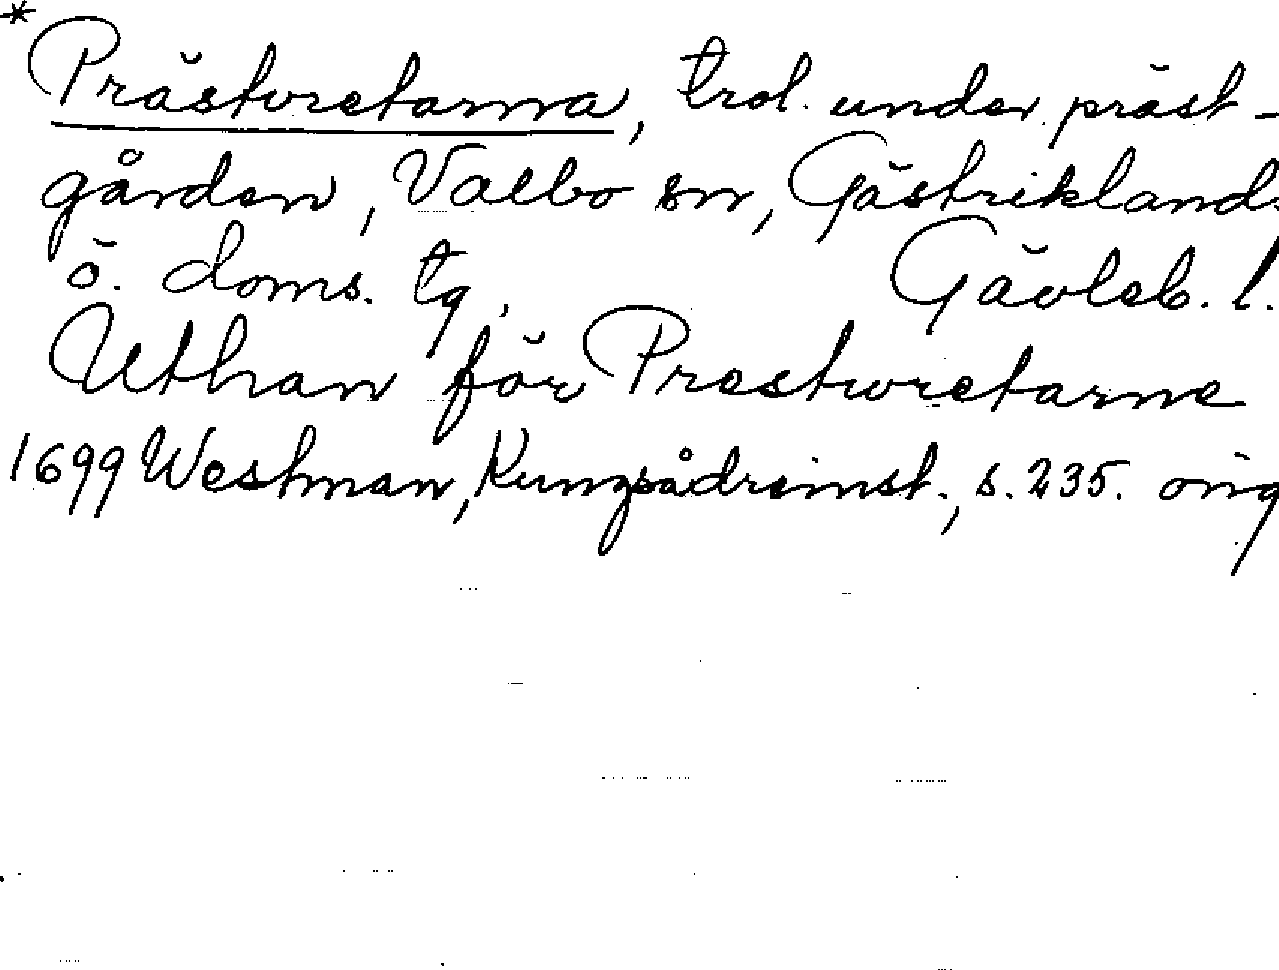 *Prästvretarna, trol. under präst-
gården, Valbo sn, Gästriklands
ö. doms. tg, Gävleb. l.
Uthan för Prestwretarne
1699 Westman, Kungsådreinst., s. 235. orig